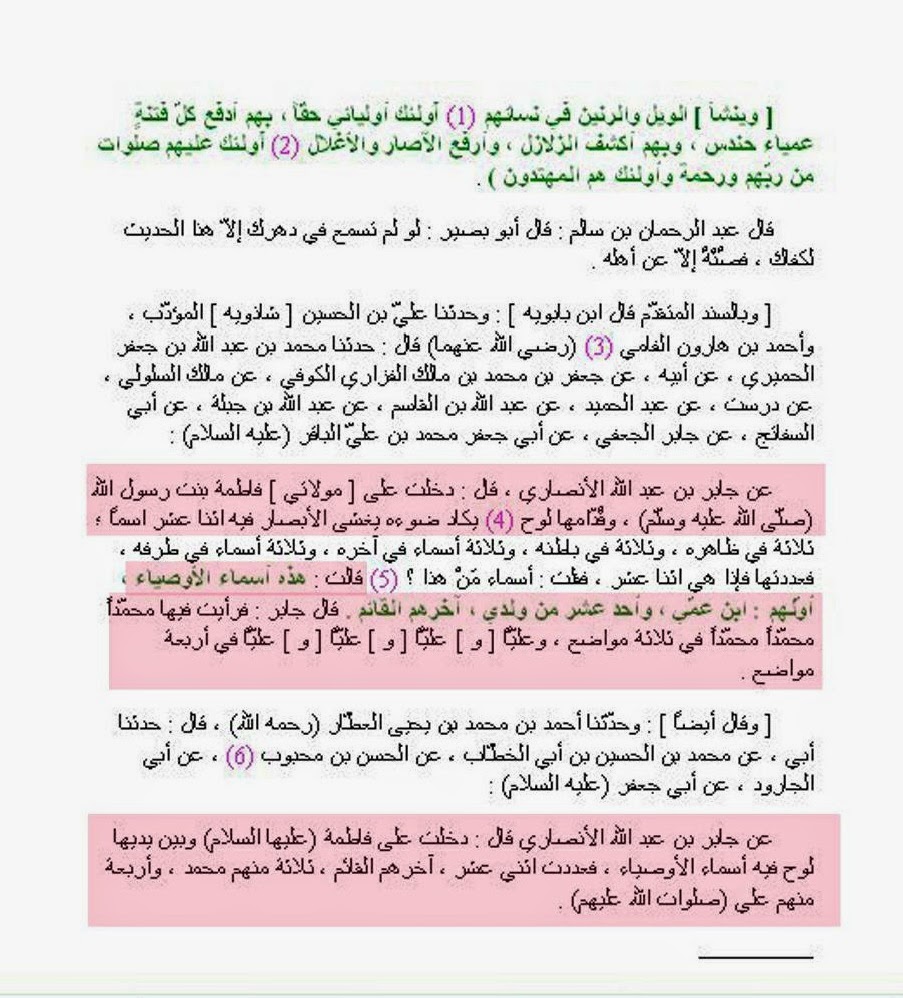 [ وينشأ ] الويل والرنين في نسائهم (1) أولئك أوليائي حقّاً ، بهم أدفع كلّ فتنةٍ
عمياء حندس ، وبهم أكشف الزلازل ، وأرفع الآصار والأغلال (2) أولئك عليهم صلوات
من ربّهم ورحمة وأولئك هم المهتدون ) .
قال عبد الرحمان بن سالم : قال أبو بصير : لو لم تسمع في دهرك إلاّ هذا الحديث
لكفاك ، فصُنْهُ إلاّ عن أهله .
[ وبالسند المتقدّم قال ابن بابويه ] : وحدثنا عليّ بن الحسين [ شاذويه ] المؤدّب ،
وأحمد بن هارون الفامي (3) (رضي الله عنهما) قال : حدثنا محمد بن عبد الله بن جعفر
الحميري ، عن أبيه ، عن جعفر بن محمد بن مالك الفزاري الكوفي ، عن مالك السلولي ،
عن درست ، عن عبد الحميد ، عن عبد الله بن القاسم ، عن عبد الله بن جبلة ، عن أبي
السفاتج ، عن جابر الجعفي ، عن أبي جعفر محمد بن عليّ الباقر (عليه السلام) :
عن جابر بن عبد الله الأنصاري ، قال : دخلت على [ مولاتي ] فاطمة بنت رسول الله
(صلّى الله عليه وسلّم) ، وقُدّامها لوح (4) يكاد ضوءه يغشى الأبصار فيه اثنا عشر اسماً ؛
ثلاثة في ظاهره ، وثلاثة في باطنه ، وثلاثة أسماء في آخره ، وثلاثة أسماء في طرفه ،
فعددتها فإذا هي اثنا عشر ، فقلت : أسماء مَنْ هذا ؟ (5) قالت : هذه أسماء الأوصياء ،
أوّلهم : ابن عمّي ، وأحد عشر من ولدي ، آخرهم القائم . قال جابر : فرأيت فيها محمّداً
محمّداً محمّداً في ثلاثة مواضع ، وعليّاً [ و ] عليّاً [ و ] عليّاً [ و ] عليّاً في أربعة
مواضع .
[ وقال أيضاً ] : وحدّثنا أحمد بن محمد بن يحيى العطّار (رحمه الله) ، قال : حدثنا
أبي ، عن محمد بن الحسين بن أبي الخطّاب ، عن الحسن بن محبوب (6) ، عن أبي
الجارود ، عن أبي جعفر (عليه السلام) :
عن جابر بن عبد الله الأنصاري قال : دخلت على فاطمة (عليها السلام) وبين يديها
لوح فيه أسماء الأوصياء ، فعددت اثني عشر ، آخرهم القائم ، ثلاثة منهم محمد ، وأربعة
منهم علي (صلوات الله عليهم) .